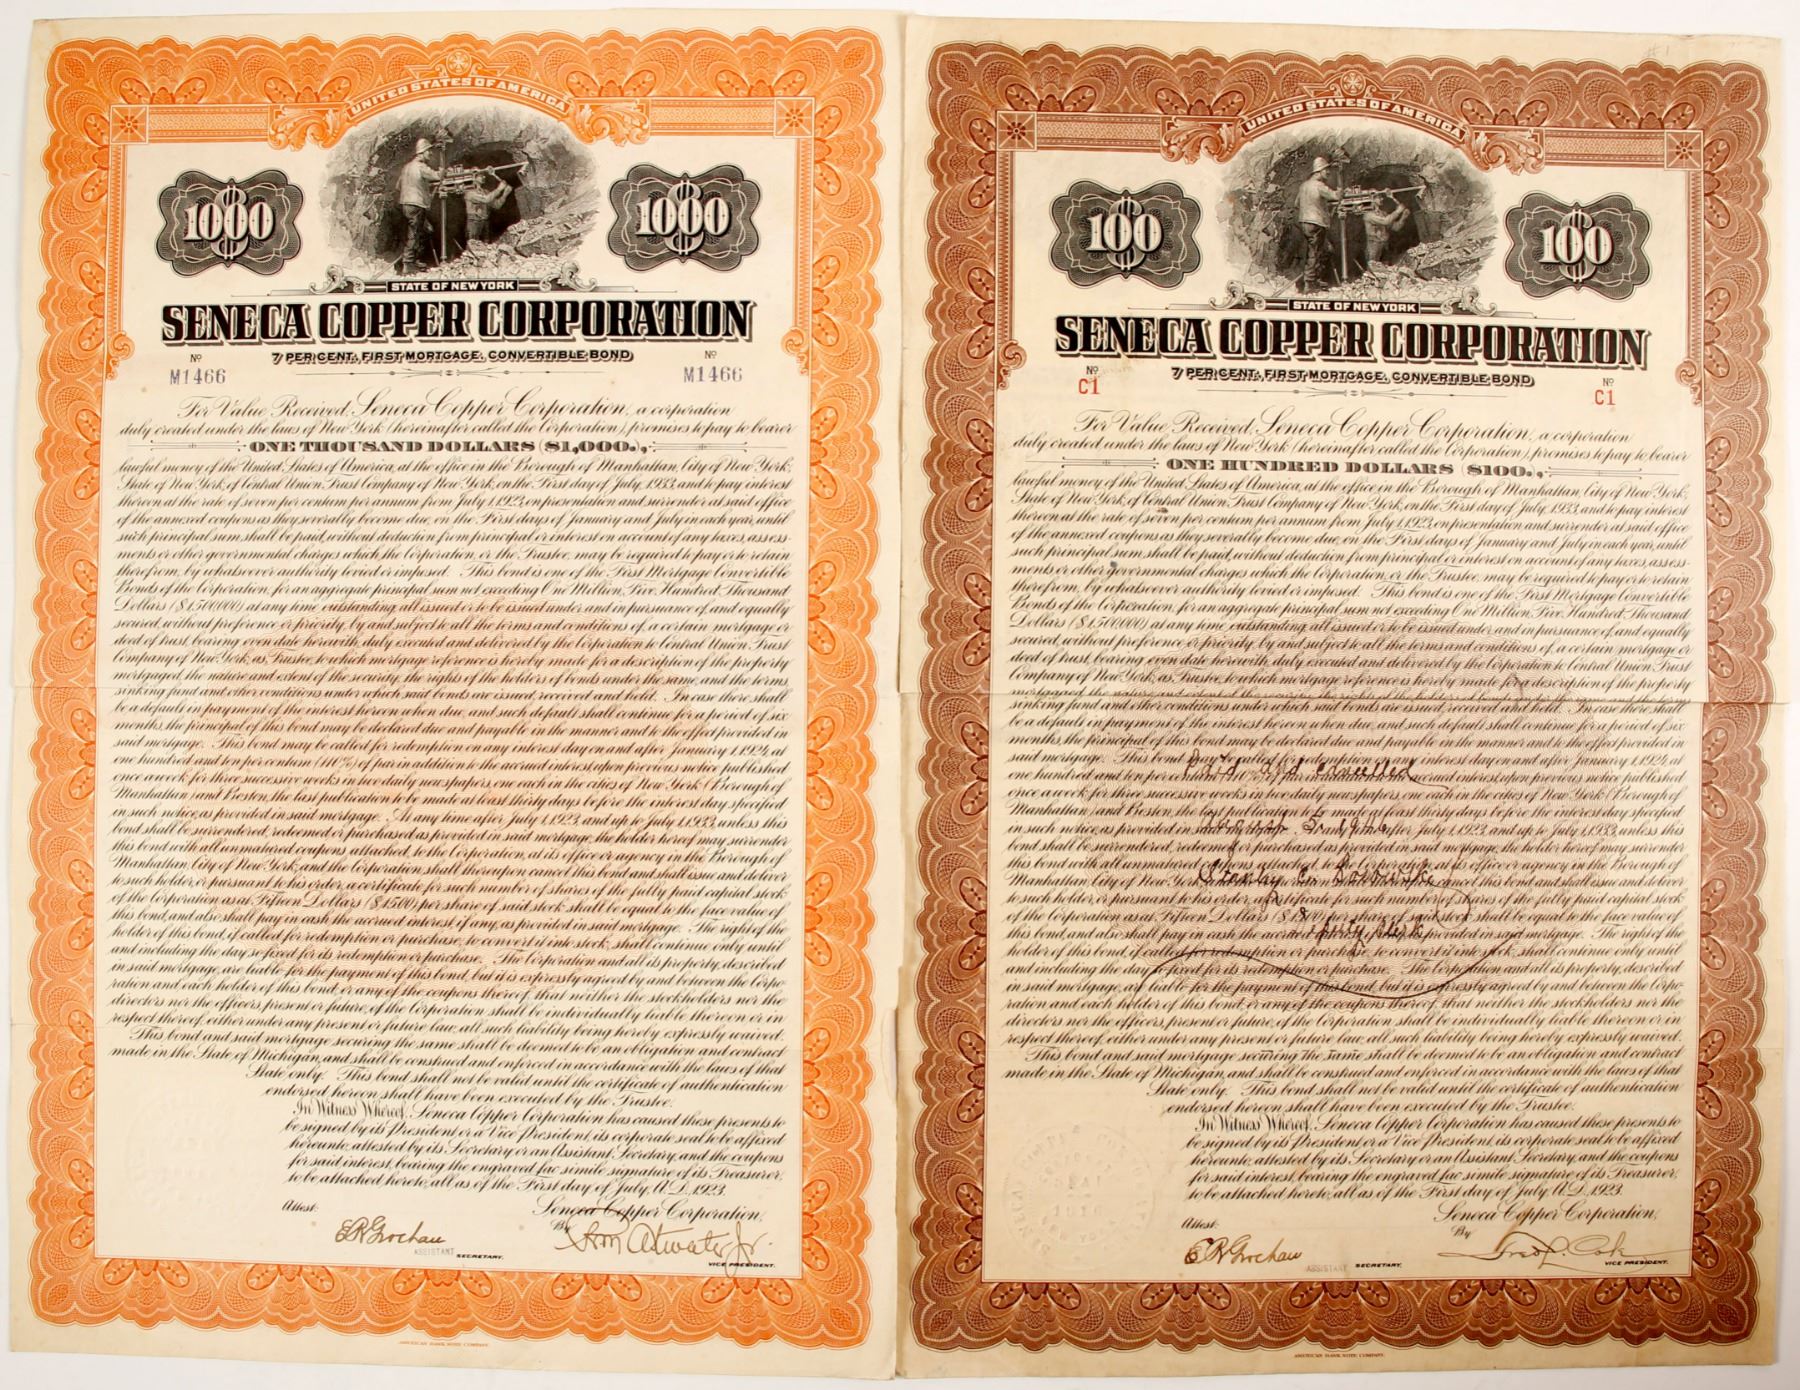 UNITED STATES OF AMERICA
1000
1000
STATE OF NEW YORK
SENECA COPPER CORPORATION
7 PER CENT. FIRST MORTGAGE, CONVERTIBLE BOND
Nº
Nº
M1466
M1466
For Value Received, Seneca Copper Corporation, a corporation
duly created under the laws of New York (hereinafter called the Corporation), promises to pay to bearer
ONE THOUSAND DOLLARS ($1,000.),
lawful money of the United States of America, at the office in the Borough of Manhattan, City of New York,
State of New York, of Central Union Trust Company of New York, on the First day of July, 1933, and to pay interest
thereon at the rate of seven per centum per annum from July 1, 1923, on presentation and surrender at said office
of the annexed coupons as they severally become due, on the First days of January and July in each year, until
such principal sum shall be paid, without deduction from principal or interest on account of any taxes, assess-
ments or other governmental charges which the Corporation, or the Trustee, may be required to pay or to retain
therefrom, by whatsoever authority levied or imposed. This bond is one of the First Mortgage Convertible
Bonds of the Corporation, for an aggregate principal sum not exceeding One Million, Five Hundred Thousand
Dollars ($1,500,000) at any time outstanding, all issued or to be issued under, and in pursuance of, and equally
secured, without preference or priority, by and subject to all the terms and conditions of, a certain mortgage or
deed of trust, bearing even date herewith, duly executed and delivered by the Corporation to Central Union Trust
Company of New York, as Trustee, to which mortgage reference is hereby made for a description of the property
mortgaged, the nature and extent of the security, the rights of the holders of bonds under the same, and the terms,
sinking fund and other conditions under which said bonds are issued, received and held. In case there shall
be a default in payment of the interest hereon when due, and such default shall continue for a period of six
months, the principal of this bond may be declared due and payable in the manner and to the effect provided in
said mortgage. This bond may be called for redemption on any interest day on and after January 1, 1924, at
one hundred and ten per centum (110%) of par in addition to the accrued interest, upon previous notice published
once a week for three successive weeks in two daily newspapers, one each in the cities of New York (Borough of
Manhattan) and Boston, the last publication to be made at least thirty days before the interest day specified
in such notice, as provided in said mortgage. At any time after July 1, 1923, and up to July 1, 1933, unless this
bond shall be surrendered, redeemed or purchased as provided in said mortgage, the holder hereof may surrender
this bond with all unmatured coupons attached, to the Corporation, at its office or agency in the Borough of
Manhattan, City of New York, and the Corporation shall thereupon cancel this bond and shall issue and deliver
to such holder, or pursuant to his order, a certificate for such number of shares of the fully paid capital stock
of the Corporation as at Fifteen Dollars ($15.00) per share of said stock shall be equal to the face value of
this bond, and also shall pay in cash the accrued interest, if any, as provided in said mortgage. The right of the
holder of this bond, if called for redemption or purchase, to convert it into stock, shall continue only until
and including the day so fixed for its redemption or purchase. The Corporation and all its property, described
in said mortgage, are liable for the payment of this bond, but it is expressly agreed by and between the Corpo-
ration and each holder of this bond, or any of the coupons thereof, that neither the stockholders nor the
directors nor the officers, present or future, of the Corporation shall be individually liable thereon or in
respect thereof, either under any present or future law, all such liability being hereby expressly waived.
This bond and said mortgage securing the same shall be deemed to be an obligation and contract
made in the State of Michigan, and shall be construed and enforced in accordance with the laws of that
State only. This bond shall not be valid until the certificate of authentication
endorsed hereon shall have been executed by the Trustee.
In Witness Whereof, Seneca Copper Corporation has caused these presents to
be signed by its President or a Vice President, its corporate seal to be affixed
hereunto, attested by its Secretary or an Assistant Secretary, and the coupons
for said interest, bearing the engraved fac simile signature of its Treasurer,
to be attached hereto, all as of the First day of July, A.D. 1923.
Attest:
Seneca Copper Corporation,
By
E R Grochau
ASSISTANT SECRETARY.
Wm Atwater Jr.
VICE PRESIDENT.
AMERICAN BANK NOTE COMPANY.
#1
UNITED STATES OF AMERICA
100
100
STATE OF NEW YORK
SENECA COPPER CORPORATION
7 PER CENT. FIRST MORTGAGE, CONVERTIBLE BOND
Nº
Nº
C1
C1
For Value Received, Seneca Copper Corporation, a corporation
duly created under the laws of New York (hereinafter called the Corporation), promises to pay to bearer
ONE HUNDRED DOLLARS ($100.),
lawful money of the United States of America, at the office in the Borough of Manhattan, City of New York,
State of New York, of Central Union Trust Company of New York, on the First day of July, 1933, and to pay interest
thereon at the rate of seven per centum per annum from July 1, 1923, on presentation and surrender at said office
of the annexed coupons as they severally become due, on the First days of January and July in each year, until
such principal sum shall be paid, without deduction from principal or interest on account of any taxes, assess-
ments or other governmental charges which the Corporation, or the Trustee, may be required to pay or to retain
therefrom, by whatsoever authority levied or imposed. This bond is one of the First Mortgage Convertible
Bonds of the Corporation, for an aggregate principal sum not exceeding One Million, Five Hundred Thousand
Dollars ($1,500,000) at any time outstanding, all issued or to be issued under, and in pursuance of, and equally
secured, without preference or priority, by and subject to all the terms and conditions of, a certain mortgage or
deed of trust, bearing even date herewith, duly executed and delivered by the Corporation to Central Union Trust
Company of New York, as Trustee, to which mortgage reference is hereby made for a description of the property
mortgaged, the nature and extent of the security, the rights of the holders of bonds under the same, and the terms,
sinking fund and other conditions under which said bonds are issued, received and held. In case there shall
be a default in payment of the interest hereon when due, and such default shall continue for a period of six
months, the principal of this bond may be declared due and payable in the manner and to the effect provided in
said mortgage. This bond may be called for redemption on any interest day on and after January 1, 1924, at
one hundred and ten per accrued interest, upon previous notice published
cancelled
once a week for three successive weeks in two daily newspapers, one each in the cities of New York (Borough of
Manhattan) and Boston, the last publication to be made at least thirty days before the interest day specified
in such notice, as provided in said after July 1, 1923, and up to July 1, 1933, unless this
bond shall be surrendered, redeemed or purchased as provided in said mortgage, the holder hereof may surrender
this bond with all unmatured coupons attached, to the Corporation, at its office or agency in the Borough of
Manhattan, City of New York, cancel this bond and shall issue and deliver
Stanley E.
to such holder, or pursuant to his order, a certificate for such number of shares of the fully paid capital stock
of the Corporation as at Fifteen Dollars per share of said stock shall be equal to the face value of
this bond, and also shall pay in cash the accrued provided in said mortgage. The right of the
Deputy Clerk
holder of this bond, if called for redemption or purchase, to convert it into stock, shall continue only until
and including the day so fixed for its redemption or purchase. The Corporation and all its property, described
in said mortgage, are liable for the payment of this bond, but it is expressly agreed by and between the Corpo-
ration and each holder of this bond, or any of the coupons thereof, that neither the stockholders nor the
directors nor the officers, present or future, of the Corporation shall be individually liable thereon or in
respect thereof, either under any present or future law, all such liability being hereby expressly waived.
This bond and said mortgage securing the same shall be deemed to be an obligation and contract
made in the State of Michigan, and shall be construed and enforced in accordance with the laws of that
State only. This bond shall not be valid until the certificate of authentication
endorsed hereon shall have been executed by the Trustee.
In Witness Whereof, Seneca Copper Corporation has caused these presents to
be signed by its President or a Vice President, its corporate seal to be affixed
hereunto, attested by its Secretary or an Assistant Secretary, and the coupons
for said interest, bearing the engraved fac simile signature of its Treasurer,
to be attached hereto, all as of the First day of July, A.D. 1923.
Attest:
Seneca Copper Corporation,
By
E R Grochau
ASSISTANT SECRETARY.
VICE PRESIDENT.
AMERICAN BANK NOTE COMPANY.